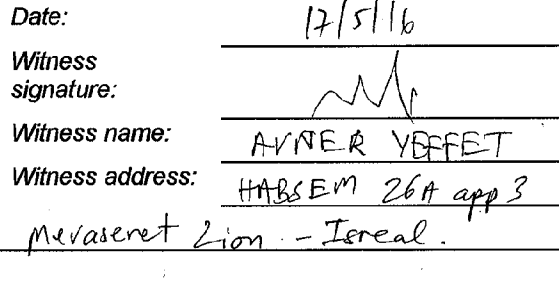 Date: 17/5/16
Witness
signature:
Witness name: AVNER YEFFET
Witness address: HABSEM 26A app 3
Mevaseret Zion - Isreal.